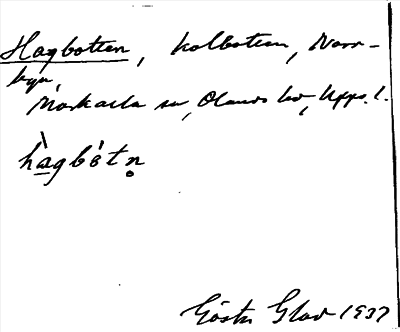 Hagbotten, kolbotten, Norr-
byn,
Morkarla sn, Olands hd, Upps. l.
hàgbótn̥
Gösta Glad 1937